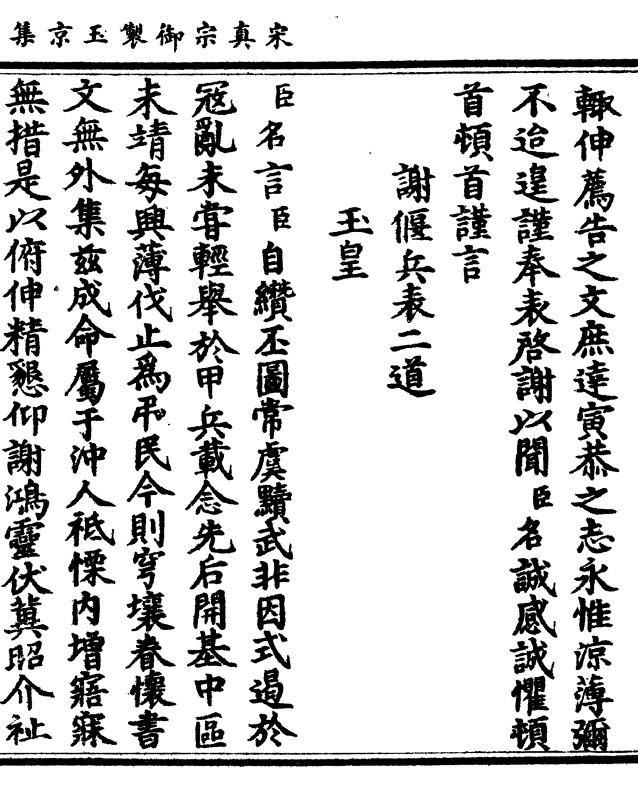 宋真宗御製玉京集
輙伸薦告之文庶達寅恭之志永惟涼薄彌
不迨遑謹奉表啓謝以聞臣名誠感誠懼頓
首頓首謹言
謝偃兵表二道
玉皇
臣名言臣自纘丕圖常虞黷武非因式遏於
寇亂未甞輕舉於甲兵載念先后開基中區
未靖每興薄伐止為弔民今則穹壤眷懷書
文無外集兹成命屬于沖人祗慄内增寤寐
無措是以俯伸精懇仰謝鴻靈伏冀昭介祉